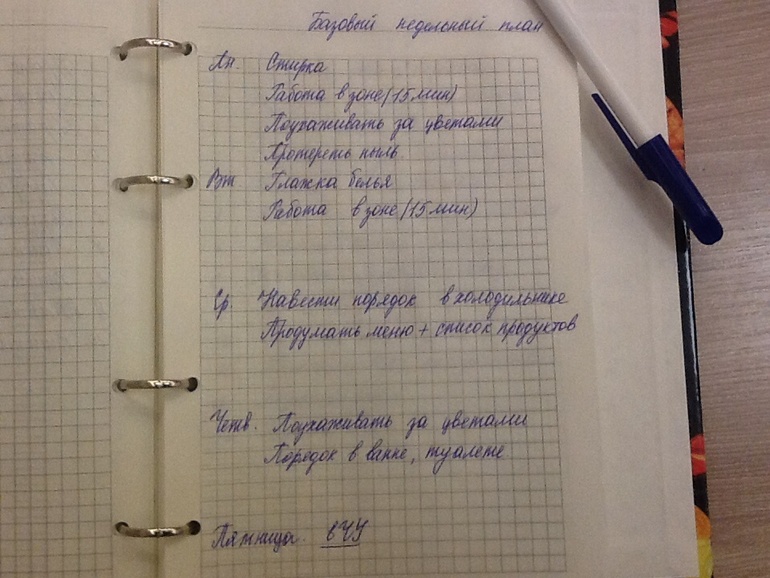 Базовый недельный план
Пн. Стирка
Работа в зоне (15 мин)
Поухаживать за цветами
Протереть пыль
Вт Глажка белья
Работа в зоне (15 мин)
Ср. Навести порядок в холодильнике
Продумать меню + список продуктов
Четв. Поухаживать за цветами
Порядок в ванне, туалете
Пятница. вЧУ